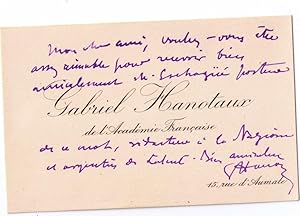 Mon cher ami, voulez-vous être
assez aimable pour recevoir bien
amicalement M. Eschagüe porteur
Gabriel Hanotaux
de l'Académie Française
de ce mot, rédacteur à la Nacion
et argentin de talent. Bien amicalement
Hanotaux
15, rue d'Aumale